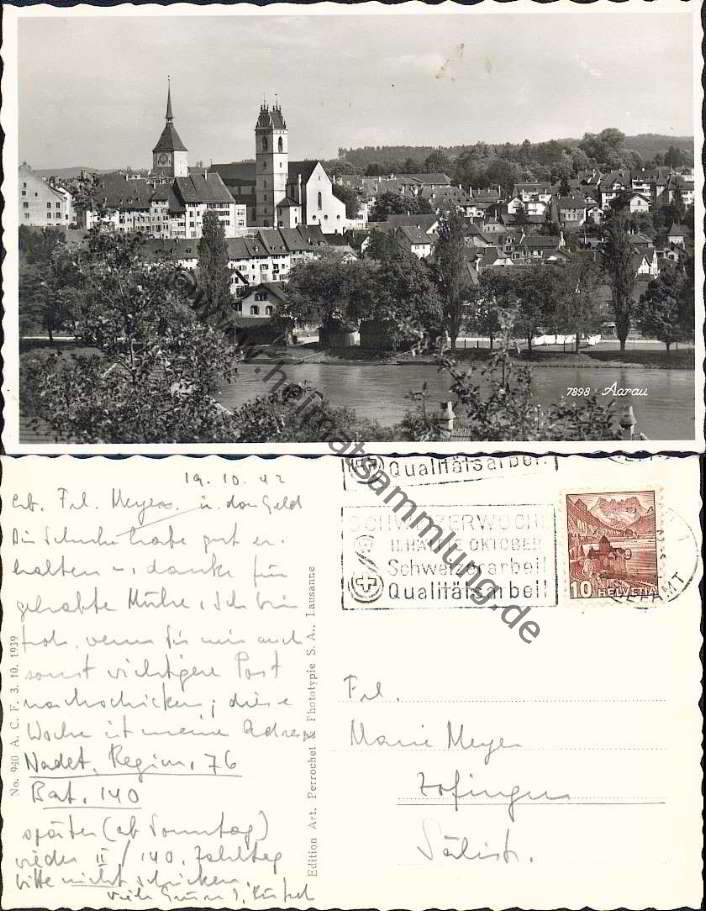 7898 Aarau
www.heimatsammlung.de
19. 10. 42
Frl. Meyer
u. das Geld
Die Schuhe habe gut er-
halten u. danke für
gehabte Mühe. Ich bin
froh, wenn Sie mir auch
sonst wichtigere Post
nachschicken; diese
Woche ist meine Adresse
Nachr. Regim. 76
Bat. 140
später (ab Sonntag)
wieder II / 140.
bitte nicht schicken.
No. 940 A. C. F. 3. 10. 1939
Edition Art. Perrochet & Phototypie S. A., Lausanne
Qualitätsarbeit
SCHWEIZERWOCHE
OKTOBER
Schweizerarbeit
Qualitätsarbeit
10 HELVETIA
Frl.
Marie Meyer
Zofingen
Sälistr.